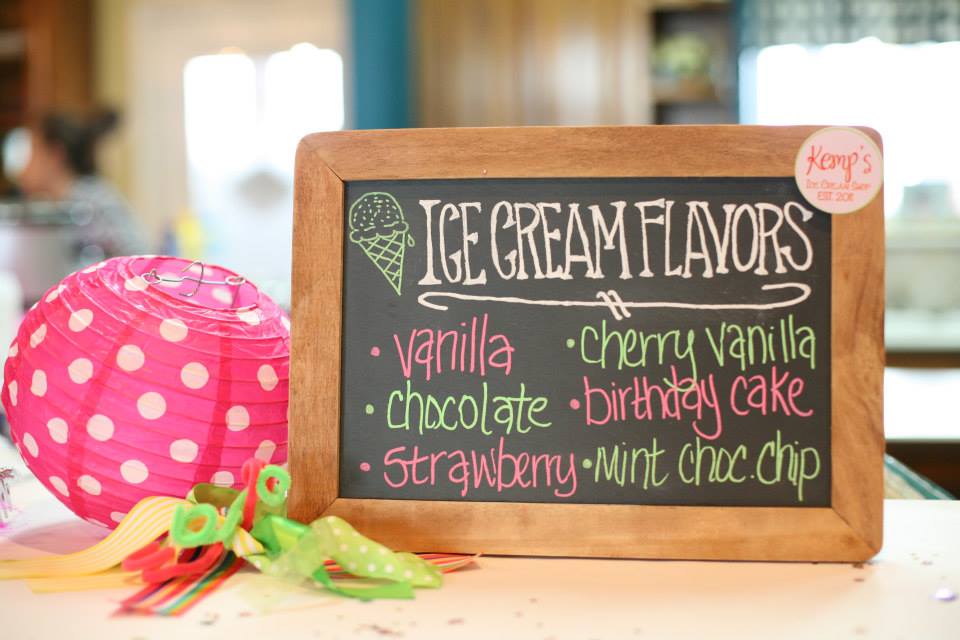 Kemp's
ICE CREAM SHOP
EST. 2011
ICE CREAM FLAVORS
• vanilla
• chocolate
• Strawberry
• cherry vanilla
• birthday cake
• Mint choc. chip